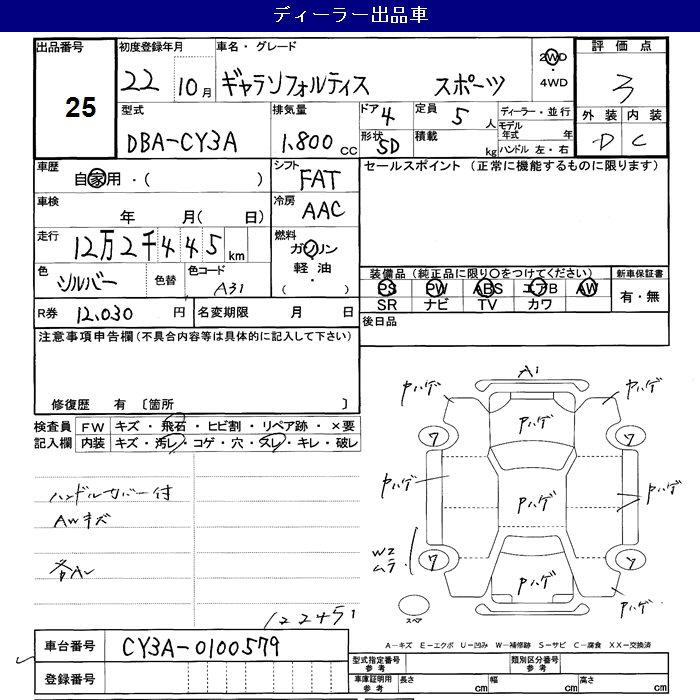 ディーラー出品車
出品番号
25
初度登録年月
22 10月
車名・グレード
ギャランフォルティス スポーツ
2WD
・
4WD
評価点
3
外装 内装
D C
型式
DBA-CY3A
排気量
1,800 cc
ドア 4
形状 SD
定員 5 人
積載 kg
ディーラー・並行
モデル年式 年
ハンドル 左・右
車歴
自家用・( )
シフト
FAT
セールスポイント (正常に機能するものに限ります)
車検
年 月( 日)
冷房
AAC
走行 12万2千445km
燃料
ガソリン
軽油
・( )
色 シルバー
色替
色コード A31
装備品(純正品に限り○をつけてください)
PS PW ABS エアB AW
SR ナビ TV カワ
新車保証書
有・無
R券 12,030 円
名変期限 月 日
後日品
注意事項申告欄(不具合内容等は具体的に記入して下さい)
修復歴 有 〔箇所 〕
検査員
記入欄
FW キズ・飛石・ヒビ割・リペア跡・×要
内装 キズ・汚レ・コゲ・穴・スレ・キレ・破レ
ハンドルカバー付
AWキズ
122451
A1
ヤハゲ
ヤハゲ
ヤハゲ
ワ
ワ
ヤハゲ
ヤハゲ
ヤハゲ
W2
ムラ
ワ
ワ
ヤハゲ
ヤハゲ
スペア
A-キズ E-エクボ U-凹み W-補修跡 S-サビ C-腐食 XX-交換済
車台番号 CY3A-0100579
登録番号
型式指定番号
参考
類別区分番号
参考
車庫証明用
参考
長さ cm
幅 cm
高さ cm